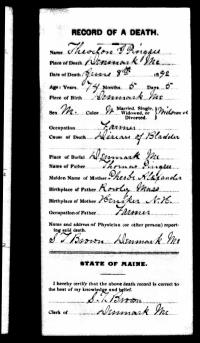 RECORD OF A DEATH.
Name
Place of Death Denmark Me
Date of Death June 8th 1892
Age: Years 74 Months 5 Days 5
Place of Birth Denmark Me
Sex M. Color W Married, Single, Widowed, or Divorced. Widowed
Occupation Farmer
Cause of Death Disease of Bladder
Place of Burial Denmark Me
Name of Father Thomas
Maiden Name of Mother Phebe Alexander
Birthplace of Father Rowley Mass
Birthplace of Mother Henniker N.H.
Occupation of Father Farmer
Name and address of Physician (or other person) reporting said death.
S T Brown Denmark Me
STATE OF MAINE.
I hereby certify that the above death record is correct to
the best of my knowledge and belief.
S. T. Brown
Clerk of Denmark Me